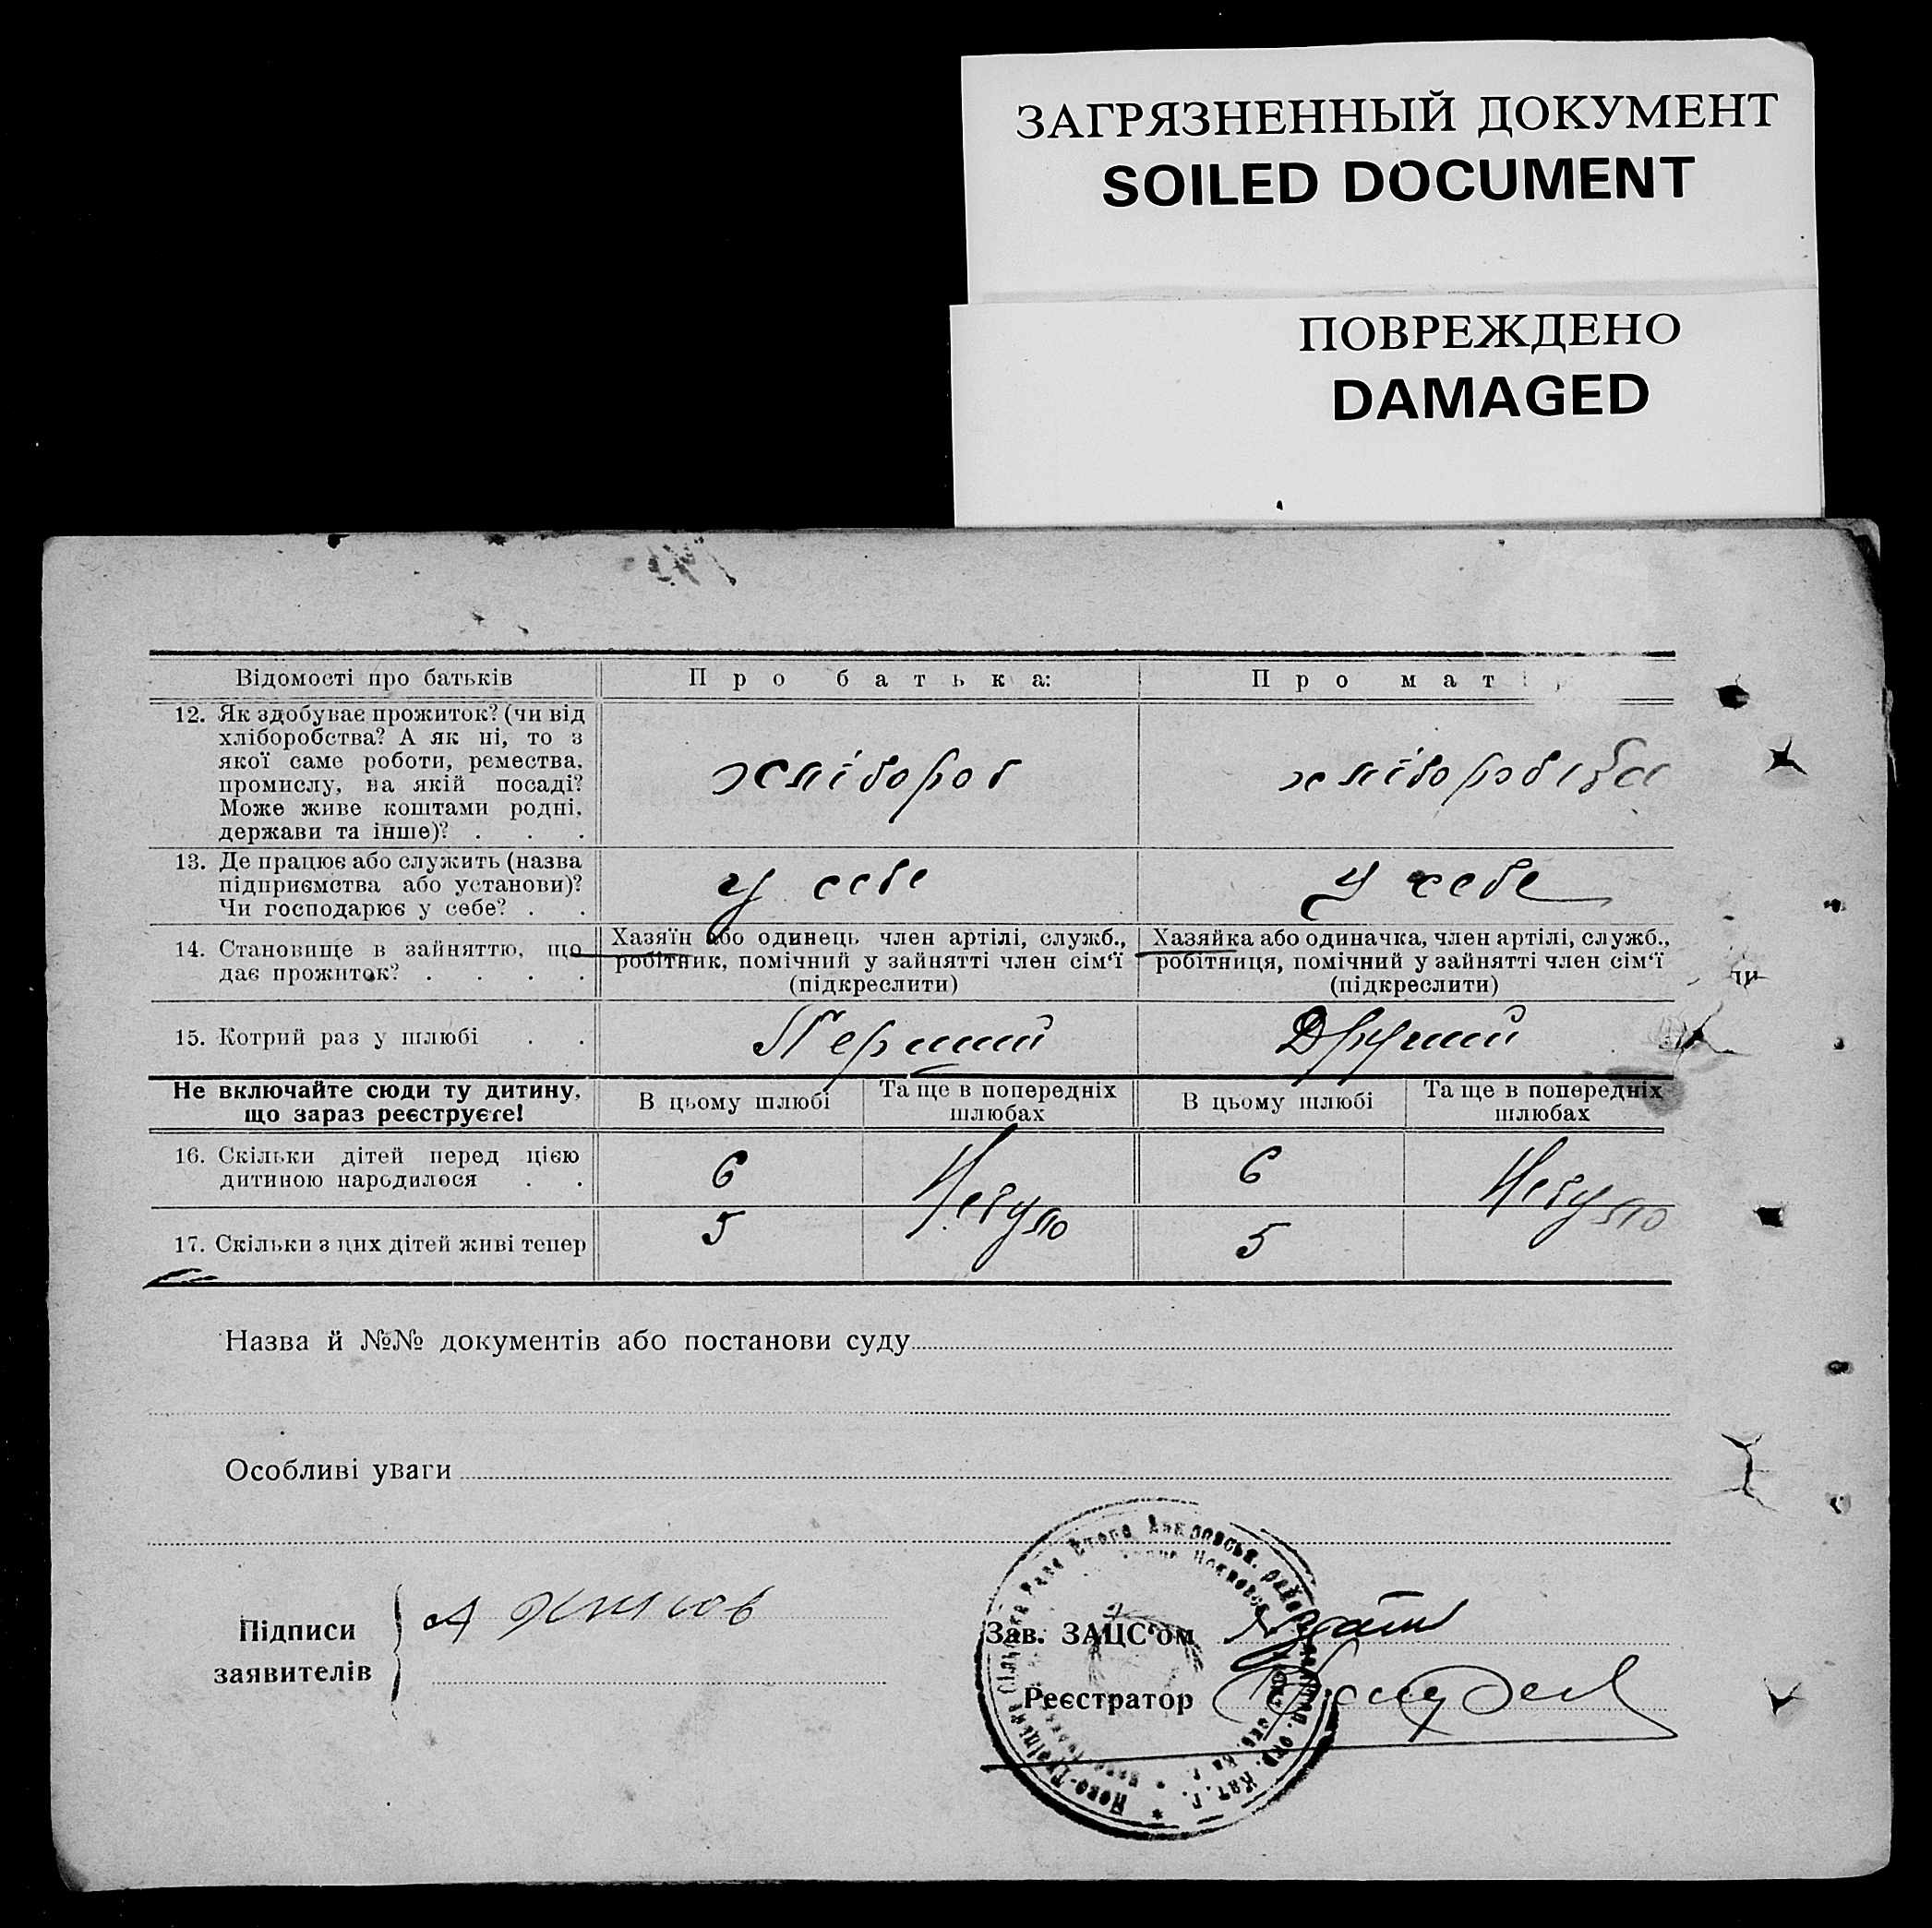 ЗАГРЯЗНЕННЫЙ ДОКУМЕНТ
SOILED DOCUMENT
ПОВРЕЖДЕНО
DAMAGED
Відомості про батьків
Про батька:
Про мат
12. Як здобуває прожиток? (чи від
хліборобства? А як ні, то з
якої саме роботи, ремества,
промислу, на якій посаді?
Може живе коштами родні,
держави та інше)? . . .
хлібороб
хліборобка
13. Де працює або служить (назва
підприємства або установи)?
Чи господарює у себе? . .
у себе
у себе
14. Становище в зайняттю, що
дає прожиток? . . . .
Хазяїн або одинець член артілі, служб.,
робітник, помічний у зайнятті член сім'ї
(підкреслити)
Хазяйка або одиначка, член артілі, служб.,
робітниця, помічний у зайнятті член сім'ї
(підкреслити)
15. Котрий раз у шлюбі . .
Перший
Другий
Не включайте сюди ту дитину,
що зараз реєструєте!
В цьому шлюбі
Та ще в попередніх
шлюбах
В цьому шлюбі
Та ще в попередніх
шлюбах
16. Скільки дітей перед цією
дитиною народилося . .
6
Небуло
6
Небуло
17. Скільки з цих дітей живі тепер
5
5
Назва й №№ документів або постанови суду
Особливі уваги
Підписи
заявителів
А
Зав. ЗАЦС'ом
Реєстратор